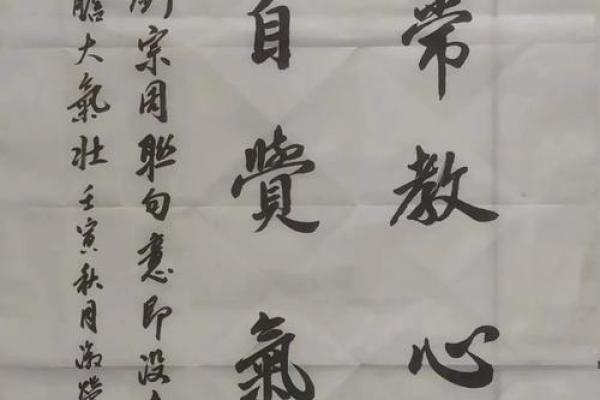 常教心
自覺氣
劉宗周聯句意即没
膽大氣壯壬寅秋月